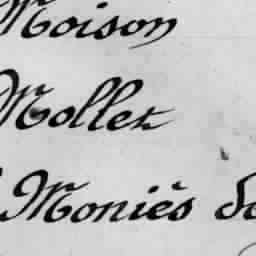 Moison
Mollet
Moniès de